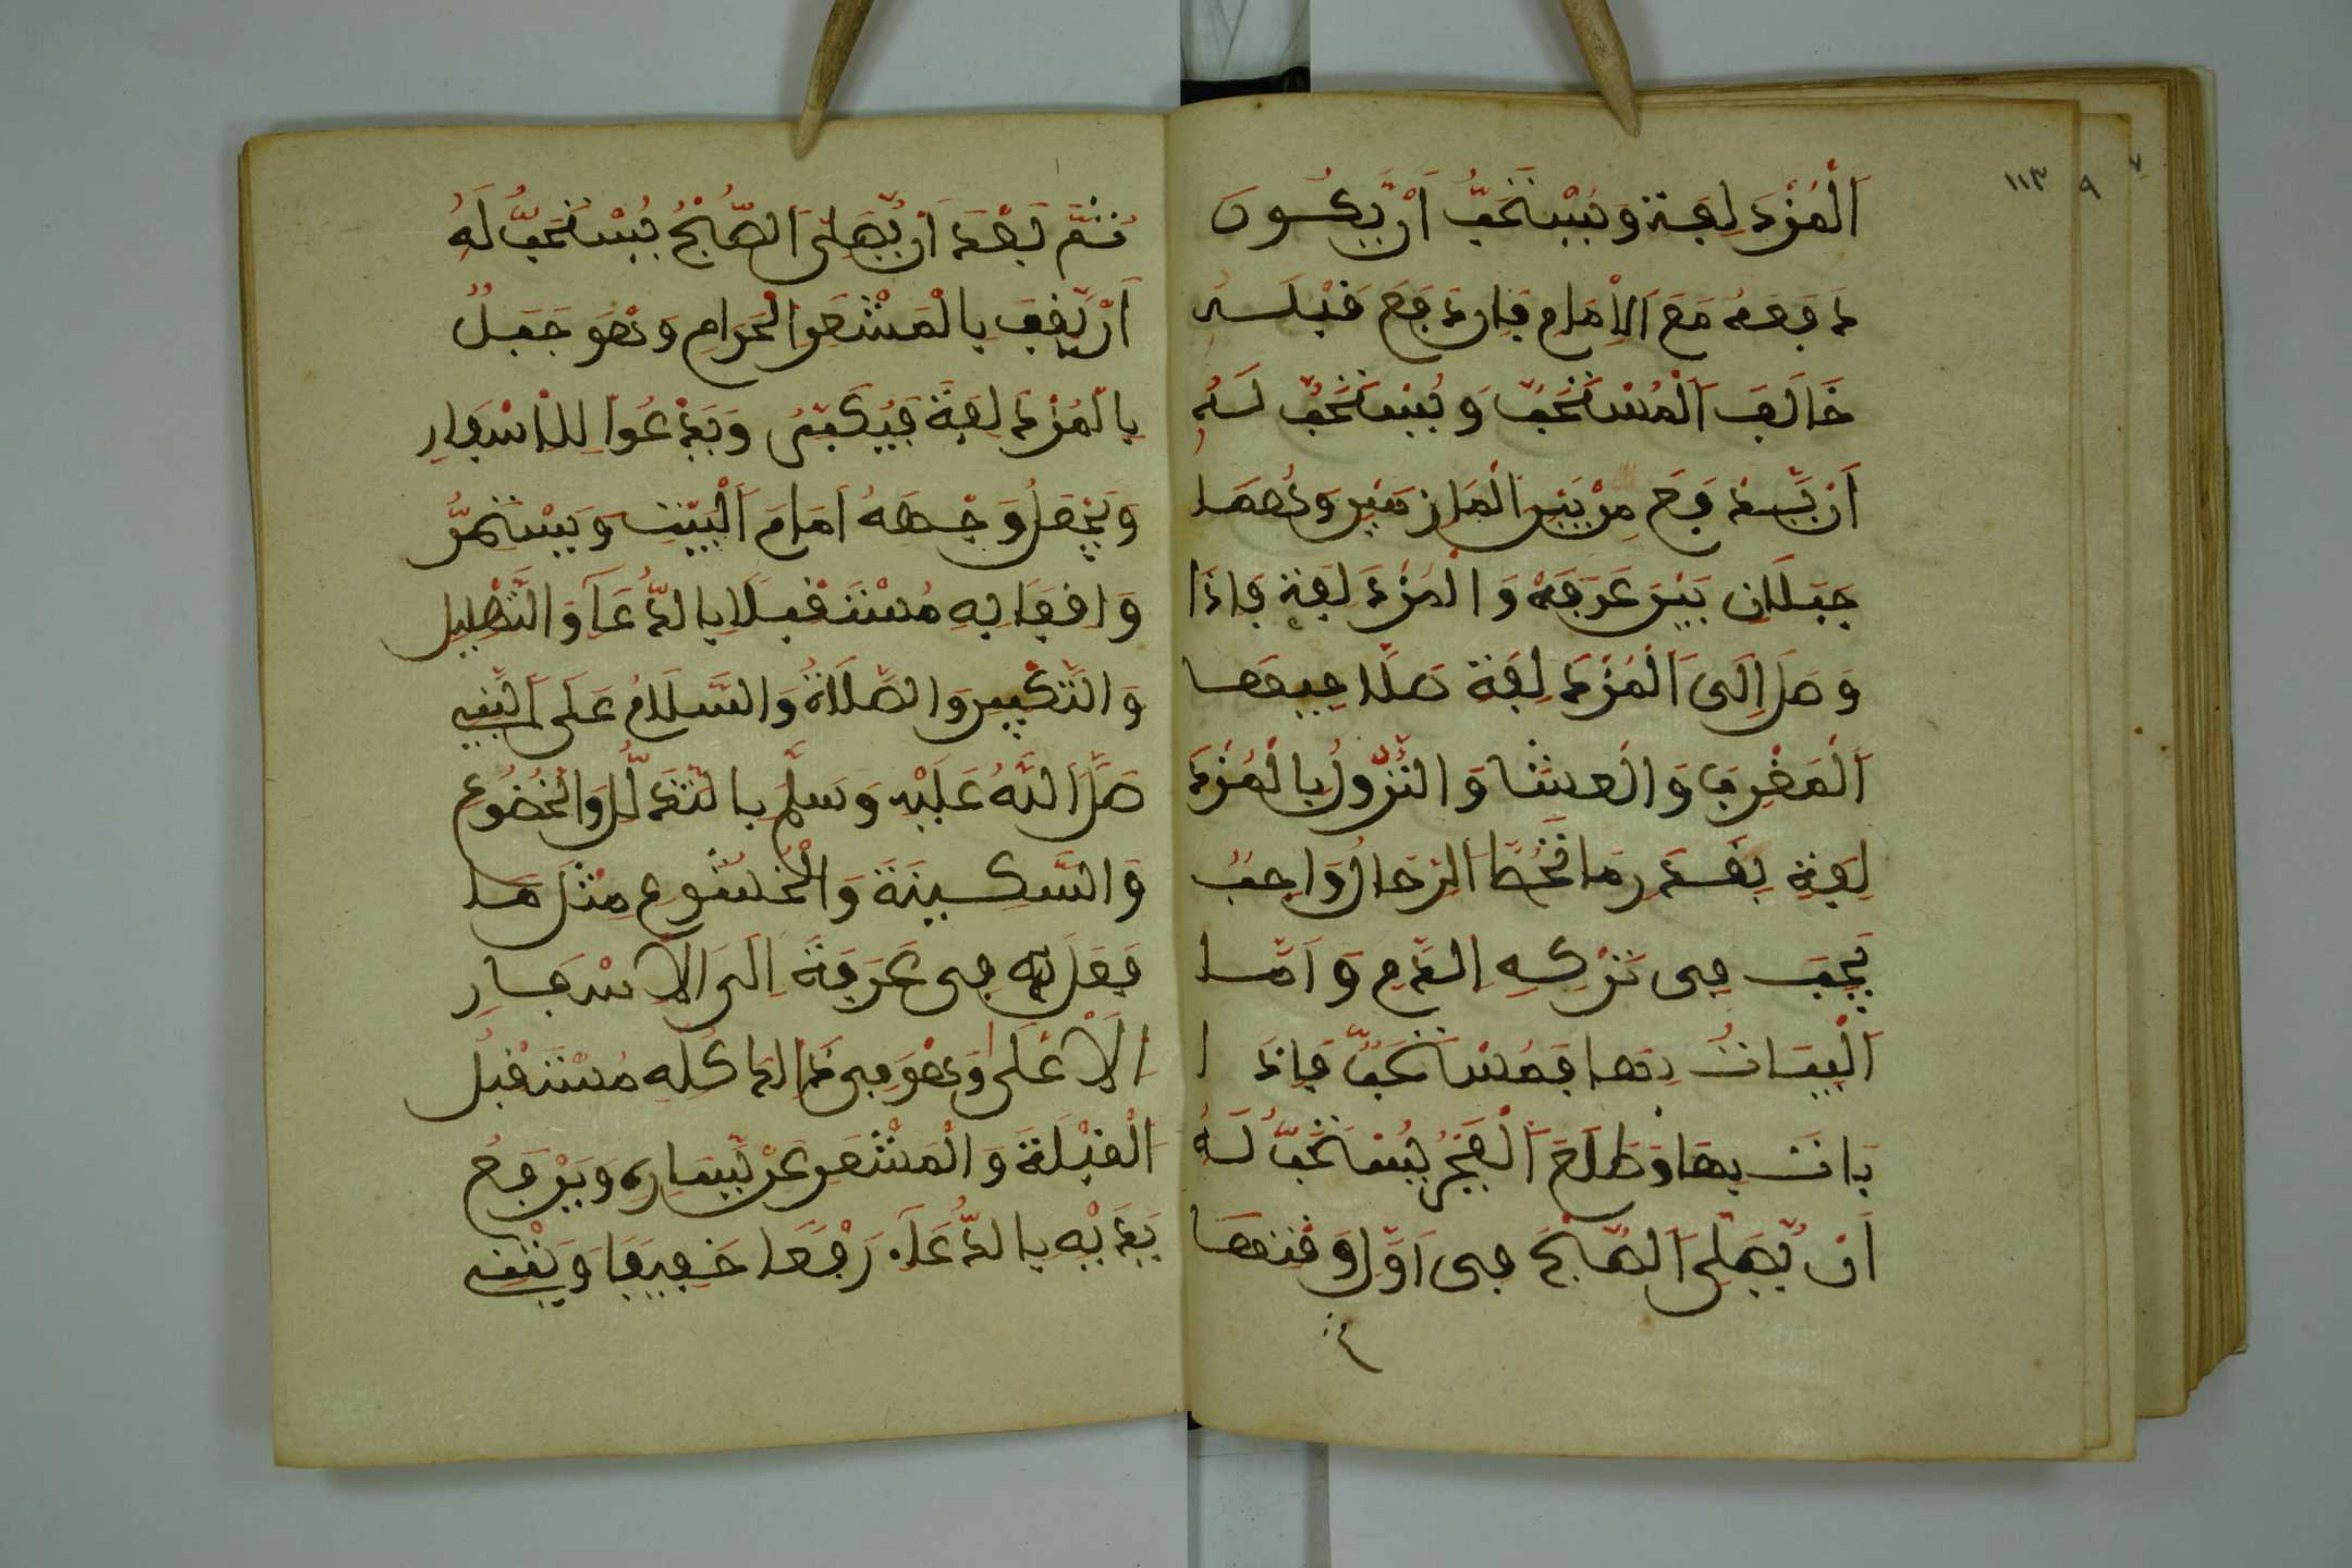 ١١٣
٩
٧
اَلْمُزْدَلِفَة وَيُسْتَحَبُّ اَنْ يَّكُونَ
دَفعه مَعَ الاِمَامِ فَإن دَفَعَ قَبْلَهُ
خَالَفَ اَلْمُسْتَحَبّ وَيُسْتَحَبُّ لَهُ
اَنْ يَّدْفَعَ مِنْ بَيْنِ الْمَازِمَيْنِ وَهُمَا
جَبَلَانِ بَيْنَ عَرَفَةْ وَالْمُزْدَلِفَةِ فَإِذَا
وَصَلَ اِلَى اَلْمُزْدَلِفَة صَلَّا فِيهَا
اَلْمَغْرِبَ وَالْعِشَا وَالنُّزُولُ بِالْمُزْدَ
لِفَةِ بِقَدْرِ مَا تُحَطُّ الرِّحَالُ وَاجِبٌ
يَجِبُ فِي تَرْكِهِ الدَّمِ وَاَمَّا
اَلْبَيَاتُ بِهَا فَمُسْتَحَبٌّ فَإِذَا
بَاتَ بِهَا وَطَلَعَ اَلْفَجْرُ يُسْتَحَبُّ لَهُ
اَنْ يُّصَلِّيَ اَلصُّبْحَ فِي اَوَّلِ وَقْتِهَا
ثُمَّ بَعْدَ اَنْ يُّصَلِّيَ اَلصُّبْحُ يُسْتَحَبُّ لَهُ
اَنْ يَّقِفَ بِالْمَشْعَرِ الْحَرَامِ وَهُوَ جَبَلٌ
بِالْمُزْدَلِفَة فَيُكَبِّرُ وَيَدْعُوا لِلْاِسْفِارِ
وَيَجْعَلُ وَجْهَهُ اَمَامَ اَلْبَيْتِ وَيَسْتَمِرُّ
وَاقِفَا بِهِ مُسْتَقْبِلَا بِالدُّعَآ وَالتَّهْلِيلِ
وَالتَّكْبِيرِ وَالصَّلَاةُ وَالسَّلَامُ عَلَى اَلنَّبِي
صَلَّ اللَّهُ عَلَيْهِ وَسَلَّمَ بِالتَّذَلُّلِ وَالْخُضُوعِ
وَالسَّكِينَةَ وَالْخُشُوعِ مِثْلَ مَا
فَعَلَ بِهِ فِي عَرَفَةَ اِلَى الْاِسْفَارِ
اَلْاَعْلَى وَهُوَ فِي ذَالِكَ كُلِّهِ مُسْتَقْبِلُ
الْقِبْلَةَ وَالْمَشْعَرِ عَنْ يَّسَارِهِ وَيَرْفَعُ
يَدَيْهِ بِالدُّعَآءِ رَفْعًا خَفِيفًا وَيَثْنِي